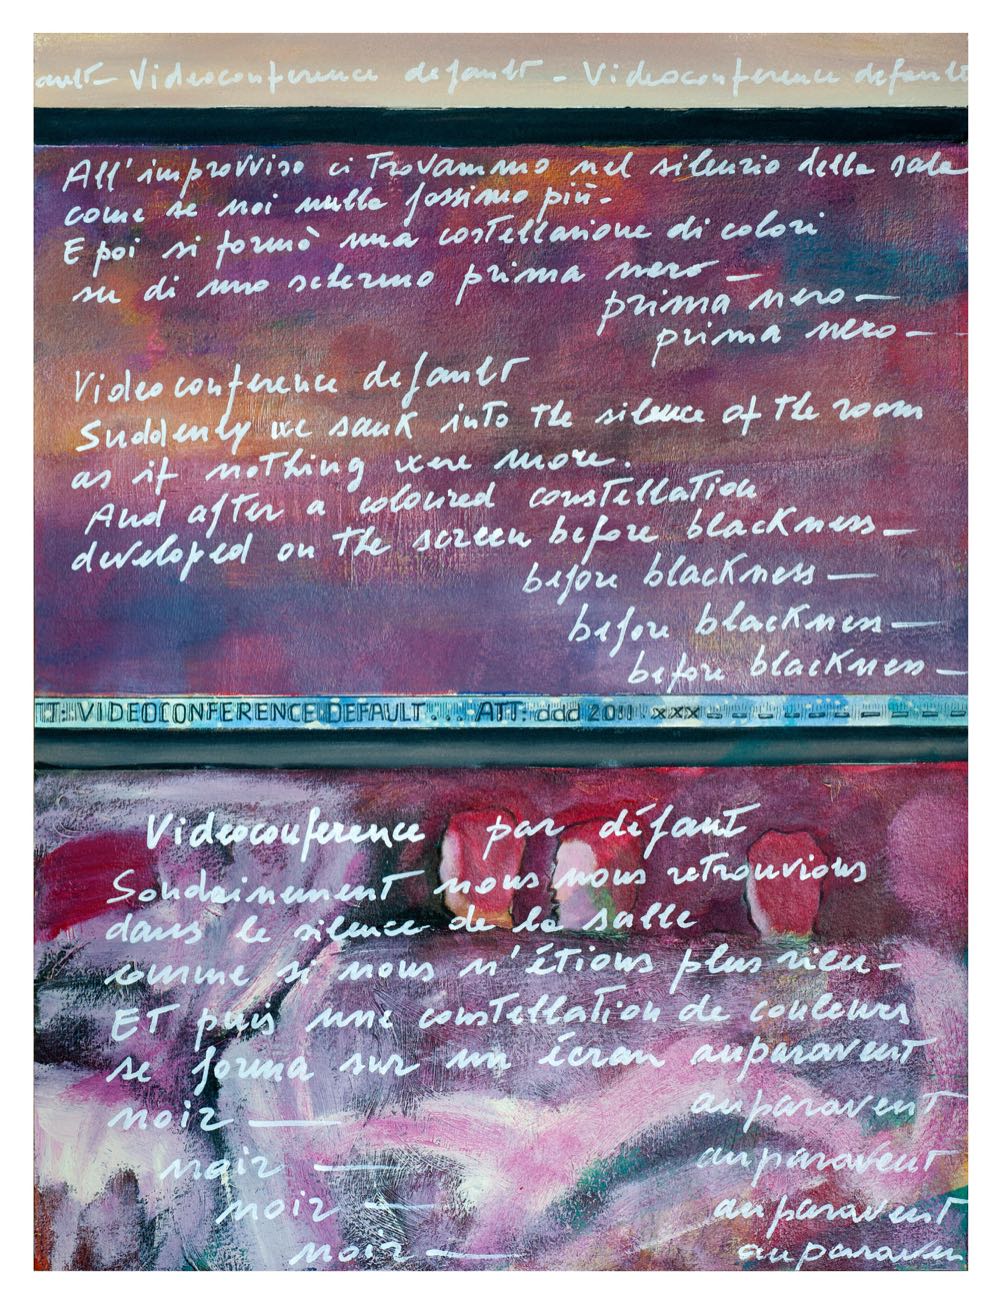 ault - Videoconference default - Videoconference default
All'improvviso ci trovammo nel silenzio della sala
come se noi nulla fossimo più -
E poi si formò una costellazione di colori
su di uno schermo prima nero -
prima nero -
prima nero -
Videoconference default
Suddenly we sank into the silence of the room
as if nothing were more.
And after a coloured constellation
developed on the screen before blackness -
before blackness -
before blackness -
before blackness -
TT: VIDEOCONFERENCE DEFAULT ... ATT: ddd 2011 xxx - - - - - - - -
Videoconference par défaut
Soudainement nous nous retrouvions
dans le silence de la salle
comme si nous n'étions plus rien -
ET puis une constellation de couleurs
se forma sur un écran auparavent
noir — auparavent
noir — auparavent
noir — auparavent
noir — auparaven